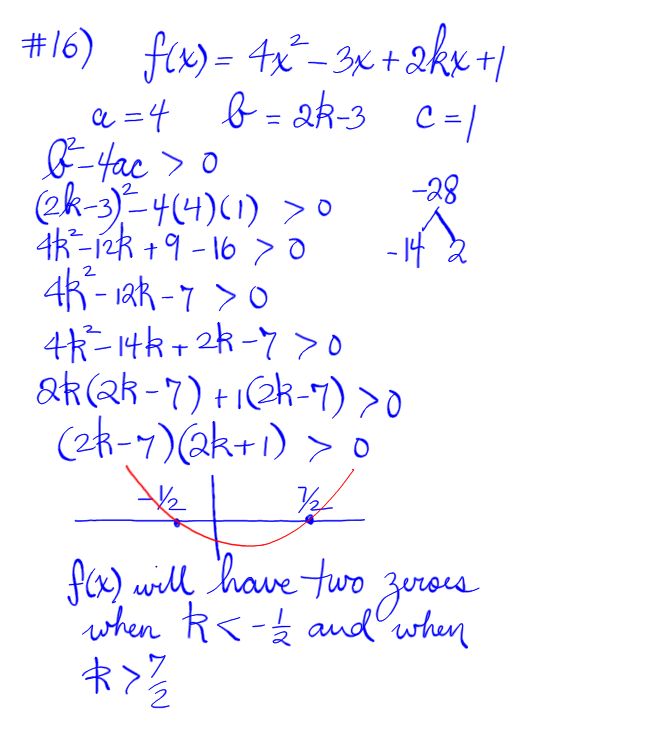 #16) f(x) = 4x² - 3x + 2kx + 1
a = 4 b = 2k-3 c = 1
b² - 4ac > 0
(2k-3)² - 4(4)(1) > 0
-28
4k² - 12k + 9 - 16 > 0
-14 2
4k² - 12k - 7 > 0
4k² - 14k + 2k - 7 > 0
2k(2k - 7) + 1(2k - 7) > 0
(2k-7)(2k+1) > 0
-1/2 7/2
f(x) will have two zeroes
when k < -1/2 and when
k > 7/2